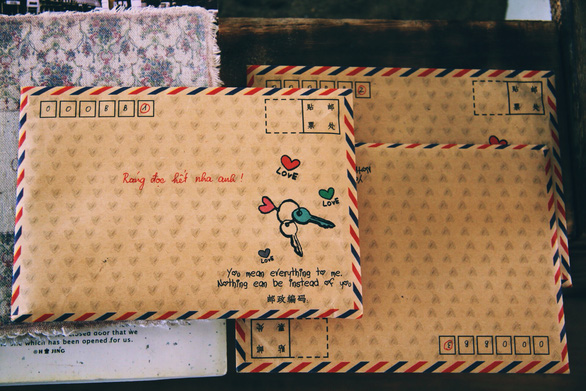 0 0 0 0 8 8
贴 邮
票 处
Ráng đọc hết nha anh!
LOVE
LOVE
LOVE
You mean everything to me.
Nothing can be instead of you
邮政编码:
贴 邮
票 处
贴 邮
票 处
8 8 0 0 0
door that we
which has been opened for us.
JING